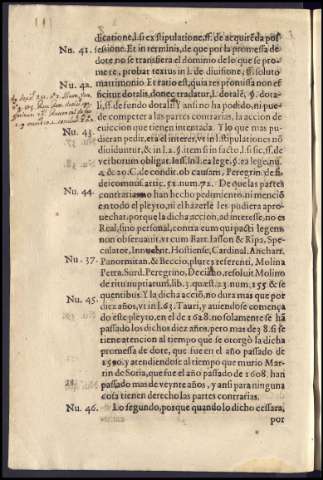 dicatione, l. si ex stipulatione, ff. de acquirẽda pos
Nu. 41. sessione. Et in terminis, de que por la promessa de
dote no se transfiera el dominio de lo que se pro-
mete, probat textus in l. de diuisione, ff. soluto
Nu. 42. matrimonio. Et ratio est, quia res promissa non ef
ficitur dotalis, donec tradatur, l. dotalẽ, §. dota-
li, ff. de fundo dotali. Y ansi no ha podido, ni pue-
de competer a las partes contrarias, la accion de
Nu. 43. euiccion que tienen intentada. Y lo que mas pu-
dieran pedir, era el interes, vt in l. stipulationes nõ
diuiduntur, & in l. 2. §. item si in facto l. si sic, ff. de
verborum obligat. less. in l. ea lege, §. ea lege, nu.
4. & 20. C. de condit. ob causam, Peregrin. de fi-
Nu. 44. deicomiss. artic. 52. num. 72. De que las partes
contrarias no han hecho pedimento ni mencio
en todo el pleyto, ni el hazerle les pudiera apro-
uechar, porque la dicha accion, ad interesse, no es
Real, sino personal, contra eum qui pacti legem
non obseruauit, vt cum Bart. Iasson & Ripa, Spe-
culator, Innocent. Hostiense, Cardinal, Anchar.
Nu. 37. Panormitan. & Beccio, plures referenti, Molina
Petra, Surd. Peregrino, Deciano, resoluit Molino
de ritu nuptiarum, lib. 3. quæst. 23. num. 155 & se
Nu. 45. quentibus. Y la dicha acciõ, no dura mas que por
diez años, vt in l. 63. Tauri, y atiendose comença
do este pleyto, en el de 1628. no solamente se hã
passado los dichos diez años, pero mas de 38. si se
tiene atencion al tiempo que se otorgò la dicha
promessa de dote, que fue en el año passado de
1590. y atendiendose al tiempo que murio Mar-
tin de Soria, que fue el año passado de 1608. han
passado mas de veynte años, y ansi para ninguna
cosa tienen derecho las partes contrarias.
Nu. 46. Lo segundo, porque quando lo dicho cessara,
por